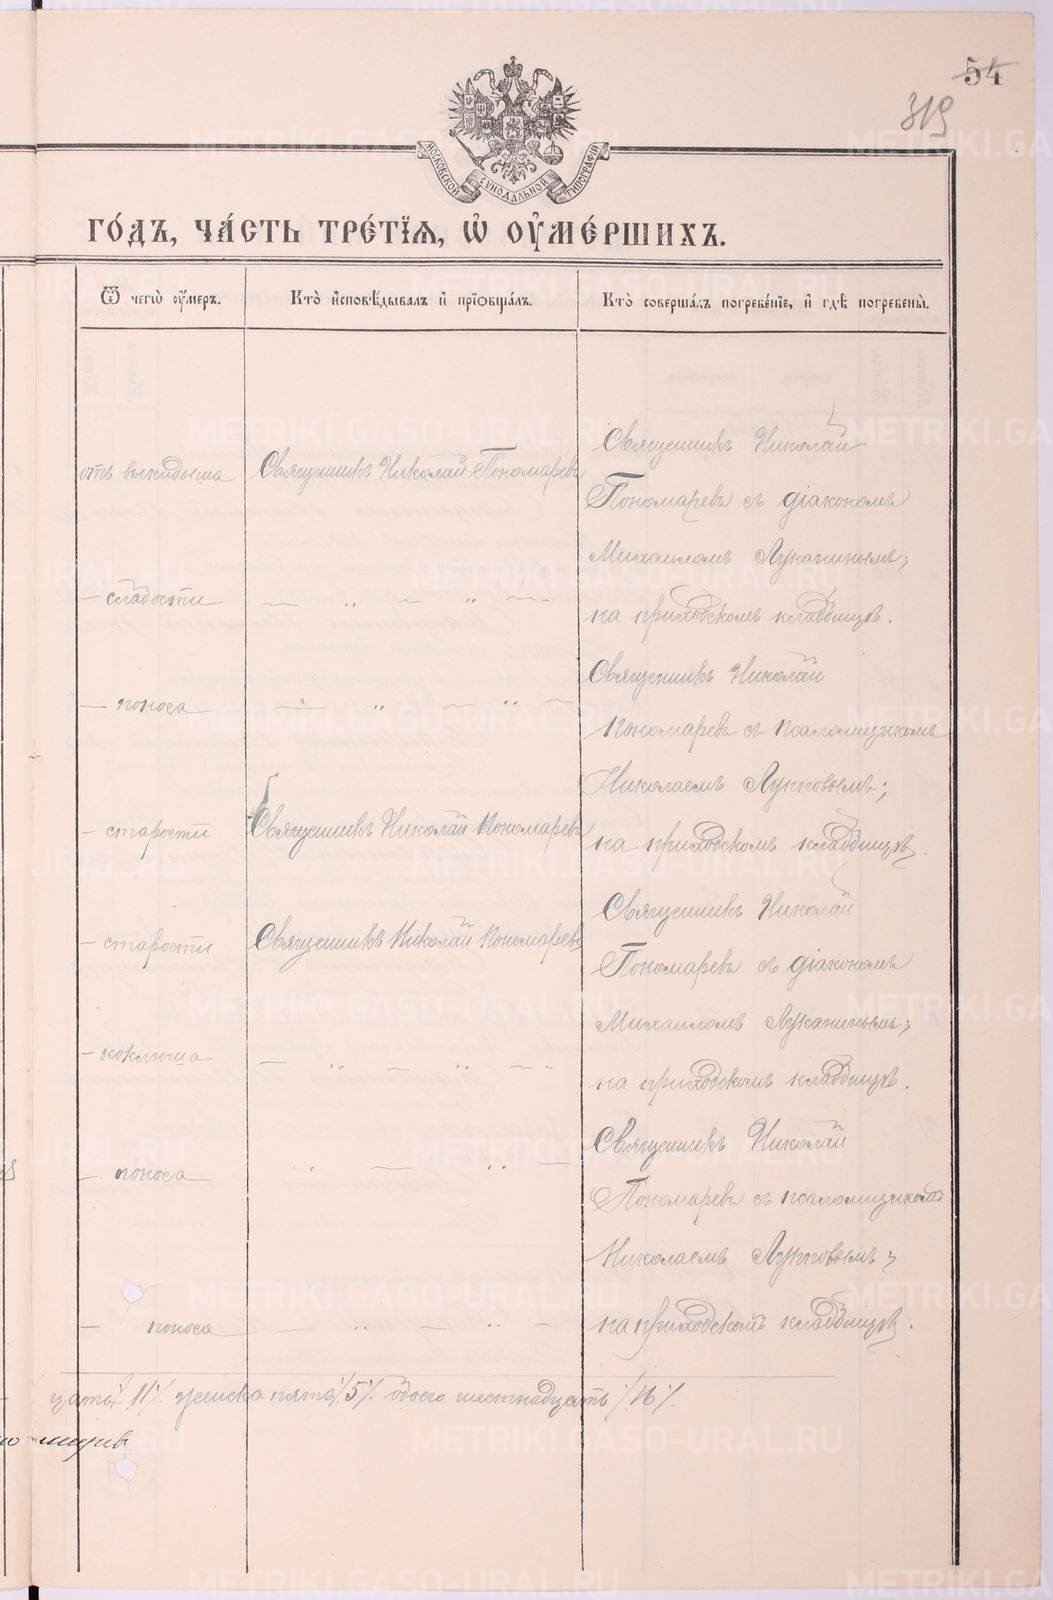 54
319
МОСКОВСКОЙ СѴНОДАЛЬНОЙ ТИПОГРАФІИ
ГО́ДЪ, ЧА́СТЬ ТРЕ́ТЇѦ, Ѡ҆ ОУ҆МЕ́РШИХЪ.
Ѿ чегѡ̀ оу҆́меръ.
Кто̀ и҆сповѣ́дывалъ и҆ прїѻбща́лъ.
Кто̀ соверша́лъ погребе́нїе, и҆ гдѣ̀ погребены̀.
отъ выкидыша
Священникъ Николай Пономаревъ
Священникъ Николай
Пономаревъ съ діакономъ
Михаиломъ Луканинымъ;
на приходскомъ кладбищѣ.
— слабости
— „ — „ —
— поноса
— „ — „ —
Священникъ Николай
Пономаревъ съ псаломщикомъ
Николаемъ Лунговымъ;
на приходскомъ кладбищѣ.
— старости
Священникъ Николай Пономаревъ
— старости
Священникъ Николай Пономаревъ
Священникъ Николай
Пономаревъ съ діакономъ
Михаиломъ Луканинымъ;
на приходскомъ кладбищѣ.
— коклюша
— „ — „ — „
— поноса
„ — „ —
Священникъ Николай
Пономаревъ съ псаломщикомъ
Николаемъ Лунговымъ;
на приходскомъ кладбищѣ.
— поноса
— „ — „ —
цать /11/. женска пять /5/. обоего шестнадцать /16/.